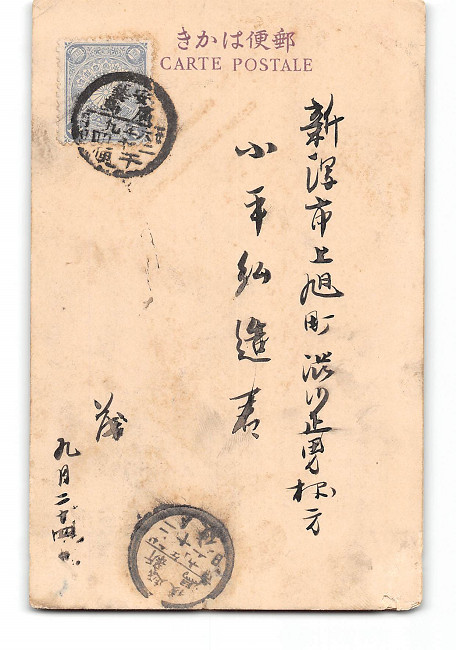 きかは便郵
CARTE POSTALE
新潟市上旭町渋川正男様方
小平弘造君
茂
九月二十四日